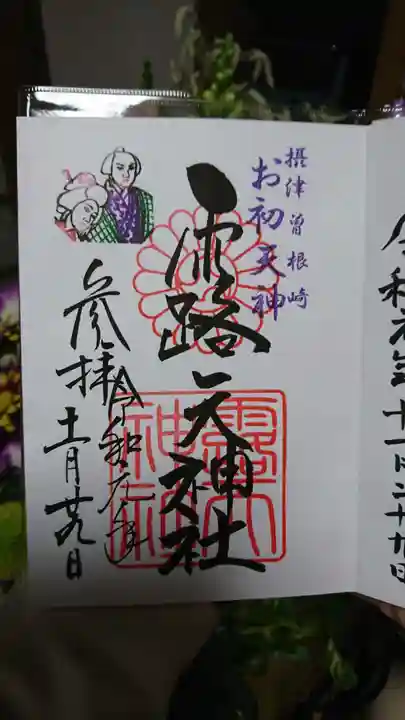 令和元年十一月二十九日
摂津曾根崎
お初天神
露天神社
露天神社
令和元年
参拝
十一月廿九日